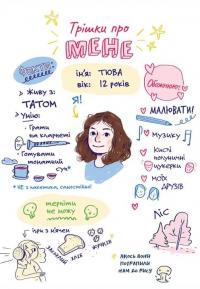 Трішки про
МЕНЕ
ім'я: ТЮВА
вік: 12 років
Я!
Живу з:
ТАТОМ
Умію:
Грати
на кларнеті
Готувати
томатний
суп*
* НЕ з пакетика, самостійно!
Обожнюю:
МАЛЮВАТИ!
МУЗИКУ
Кислі
полуничні
цукерки
моїх
ДРУЗІВ
терпіти
не можу
ігри з м'ячем
черствий хліб
жуків
ліс
якось вони
потрапили
нам до рису